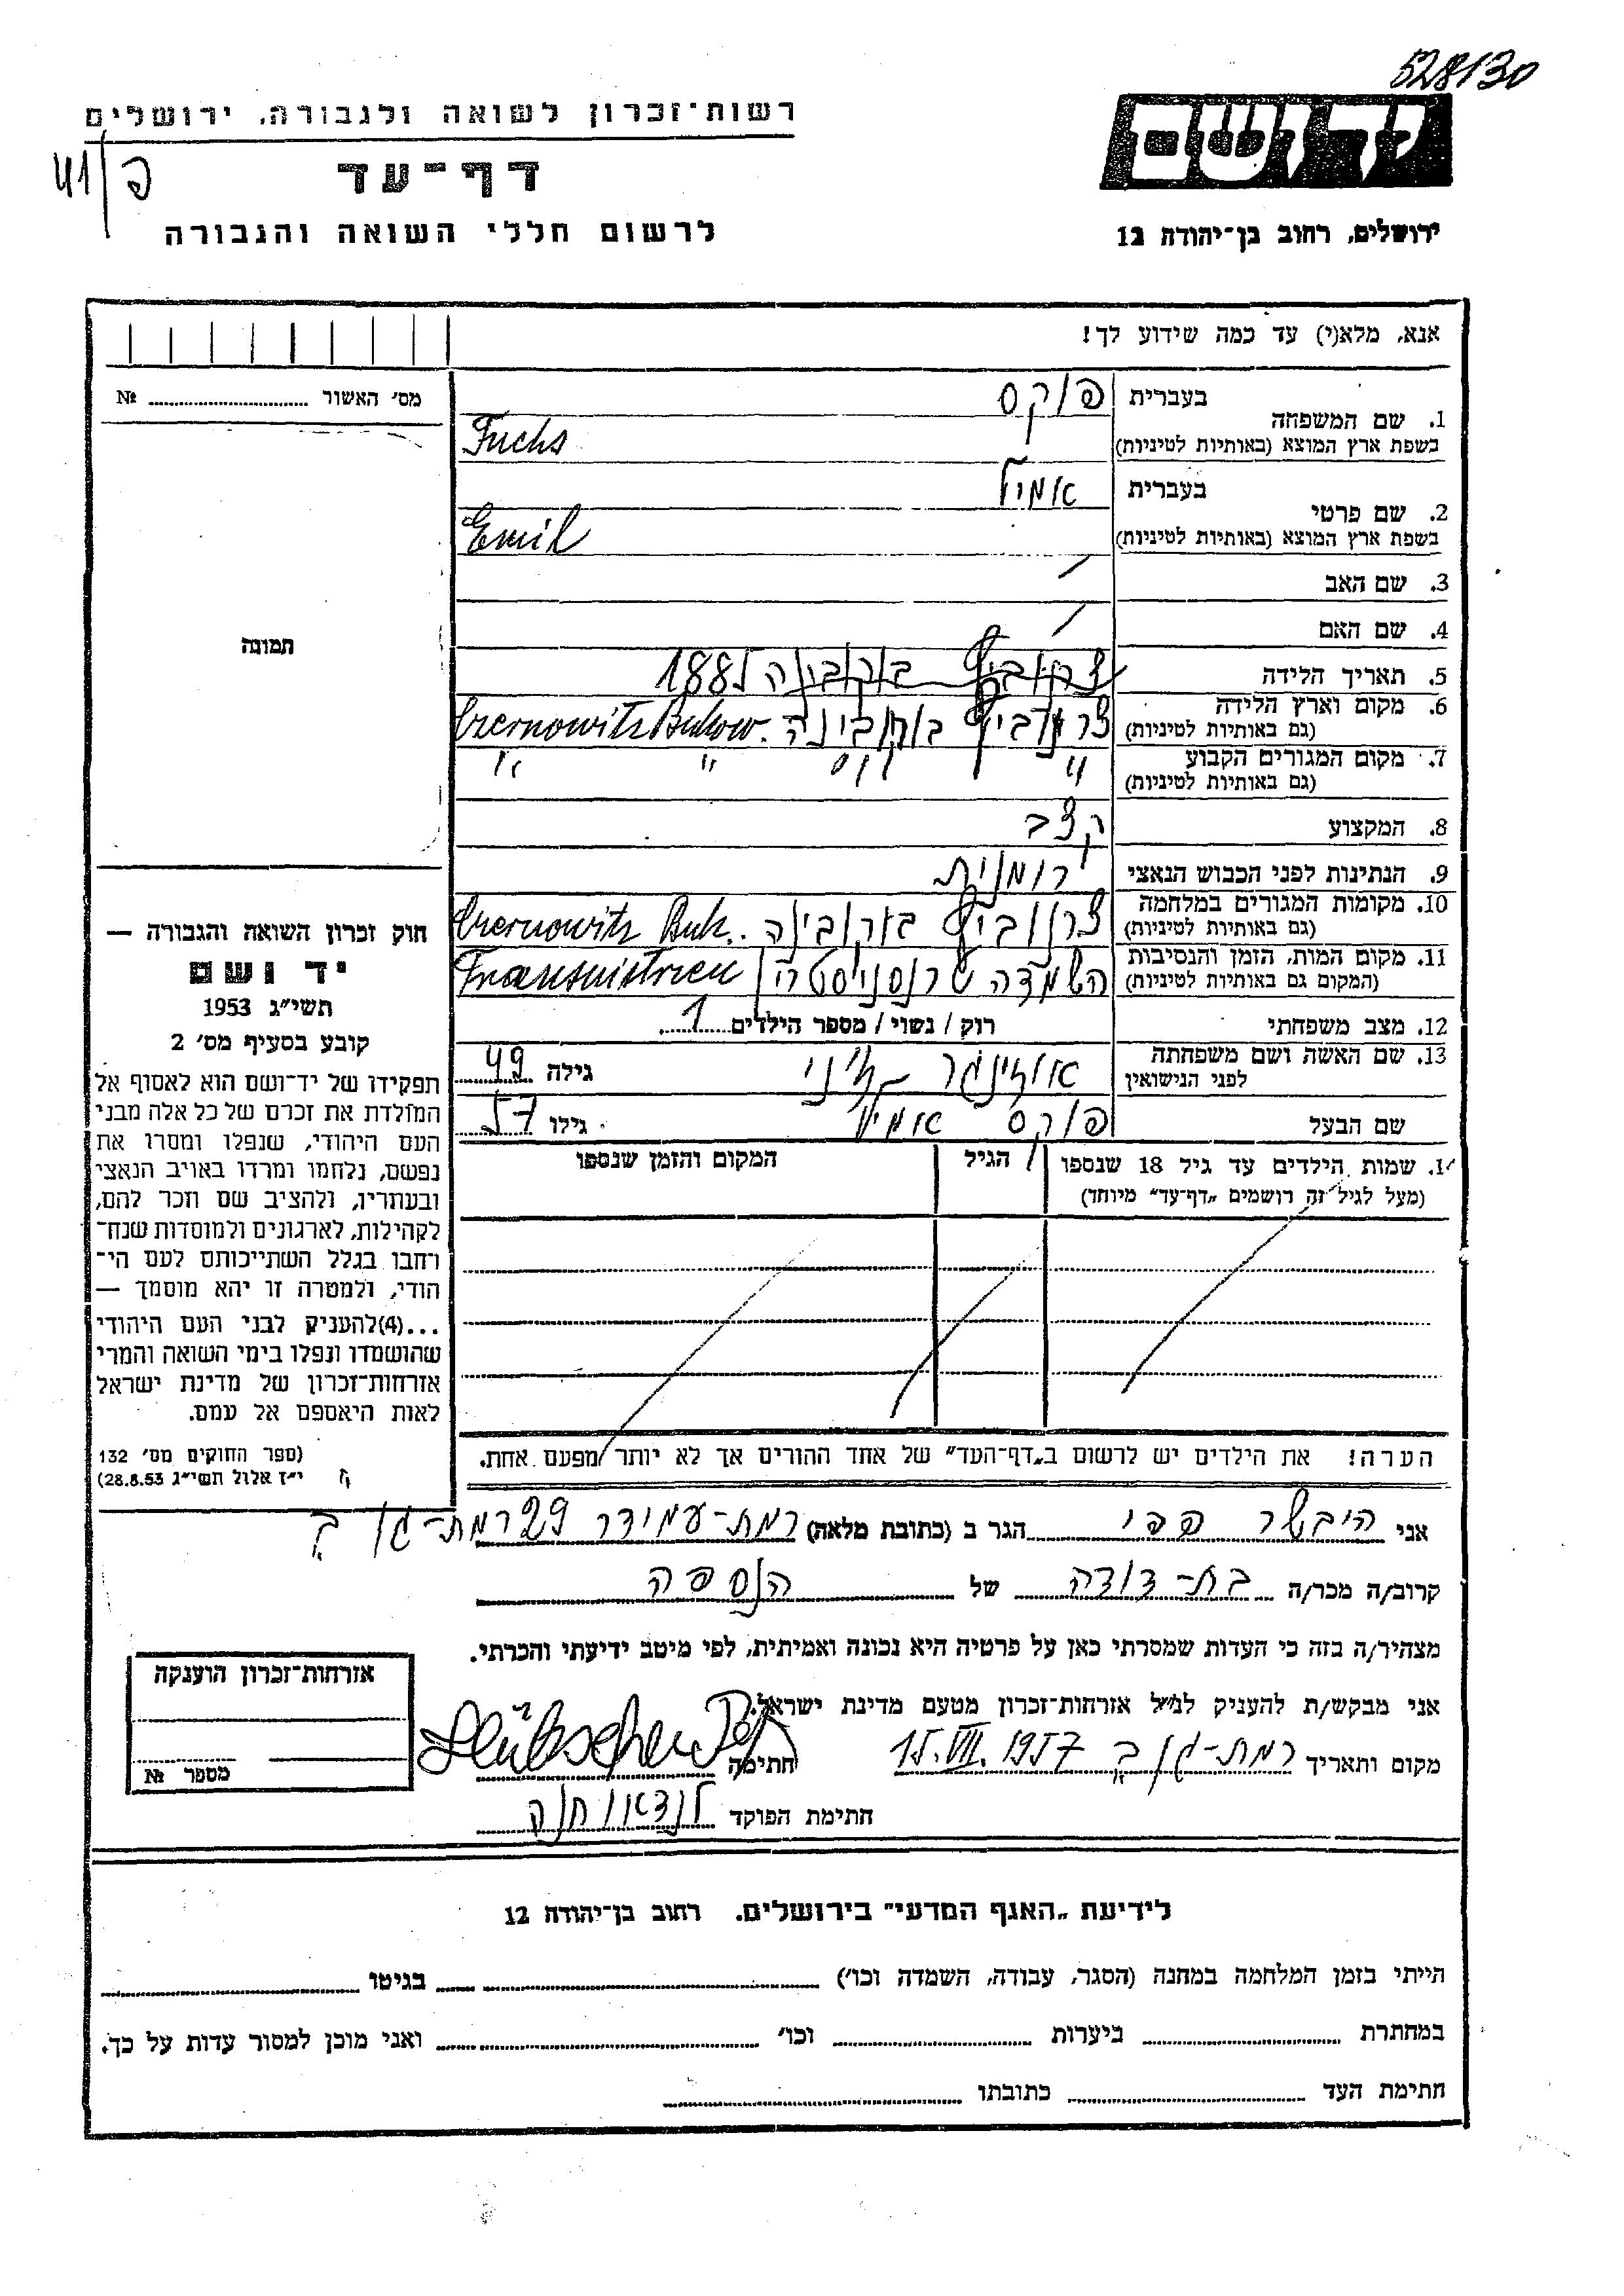 528130
רשות־זכרון לשואה ולגבורה, ירושלים
פ/41
דף־עד
לרשום חללי השואה והגבורה
ידושם
ירושלים, רחוב בן־יהודה 12
אנא, מלא(י) עד כמה שידוע לך!
מס׳ האשור № 
בעברית פוקס
1. שם המשפחה
בשפת ארץ המוצא (באותיות לטיניות) Fuchs
בעברית אמיל
2. שם פרטי
בשפת ארץ המוצא (באותיות לטיניות) Emil
3. שם האב /
4. שם האם /
תמונה
5. תאריך הלידה 1885
6. מקום וארץ הלידה צרנוביץ בוקובינה. Czernowitz Bukow.
(גם באותיות לטיניות)
7. מקום המגורים הקבוע " " " "
(גם באותיות לטיניות)
8. המקצוע קצב
9. הנתינות לפני הכבוש הנאצי רומנית
10. מקומות המגורים במלחמה צרנוביץ בוקובינה.. Czernowitz Buk.
(גם באותיות לטיניות)
11. מקום המות, הזמן והנסיבות השמדה Transnistrien
(המקום גם באותיות לטיניות)
12. מצב משפחתי רוק / נשוי / מספר הילדים 1
13. שם האשה ושם משפחתה
לפני הנישואין גילה 49
שם הבעל פוקס אמיל גילו 57
14. שמות הילדים עד גיל 18 שנספו הגיל המקום והזמן שנספו
(מעל לגיל זה רושמים „דף־עד״ מיוחד)
הערה! את הילדים יש לרשום ב„דף־העד״ של אחד ההורים אך לא יותר מפעם אחת.
חוק זכרון השואה והגבורה —
יד ושם
תשי״ג 1953
קובע בסעיף מס׳ 2
תפקידו של יד־ושם הוא לאסוף אל
המולדת את זכרם של כל אלה מבני
העם היהודי, שנפלו ומסרו את
נפשם, נלחמו ומרדו באויב הנאצי
ובעוזריו, ולהציב שם וזכר להם,
לקהילות, לארגונים ולמוסדות שנח־
רחבו בגלל השתייכותם לעם הי־
הודי, ולמטרה זו יהא מוסמך —
...(4)להעניק לבני העם היהודי
שהושמדו ונפלו בימי השואה והמרי
אזרחות־זכרון של מדינת ישראל
לאות היאספם אל עמם.
(ספר החוקים מס׳ 132
י״ז אלול תשי״ג 28.8.53)
אני היבשר פפי הגר ב (כתובת מלאה) רמת-עמידר 29 רמת-גן
קרוב/ה מכר/ה בת-דודה של הנספה
מצהיר/ה בזה כי העדות שמסרתי כאן על פרטיה היא נכונה ואמיתית, לפי מיטב ידיעתי והכרתי.
אני מבקש/ת להעניק לנ״ל אזרחות־זכרון מטעם מדינת ישראל.
מקום ותאריך רמת-גן 15.VII.1957 חתימה
חתימת הפוקד לנדאו חנה
אזרחות־זכרון הוענקה
מספר №
לידיעת „האגף המדעי״ בירושלים. רחוב בן־יהודה 12
הייתי בזמן המלחמה במחנה (הסגר, עבודה, השמדה וכו׳) בגיטו
במחתרת ביערות וכו׳ ואני מוכן למסור עדות על כך.
חתימת העד כתובתו